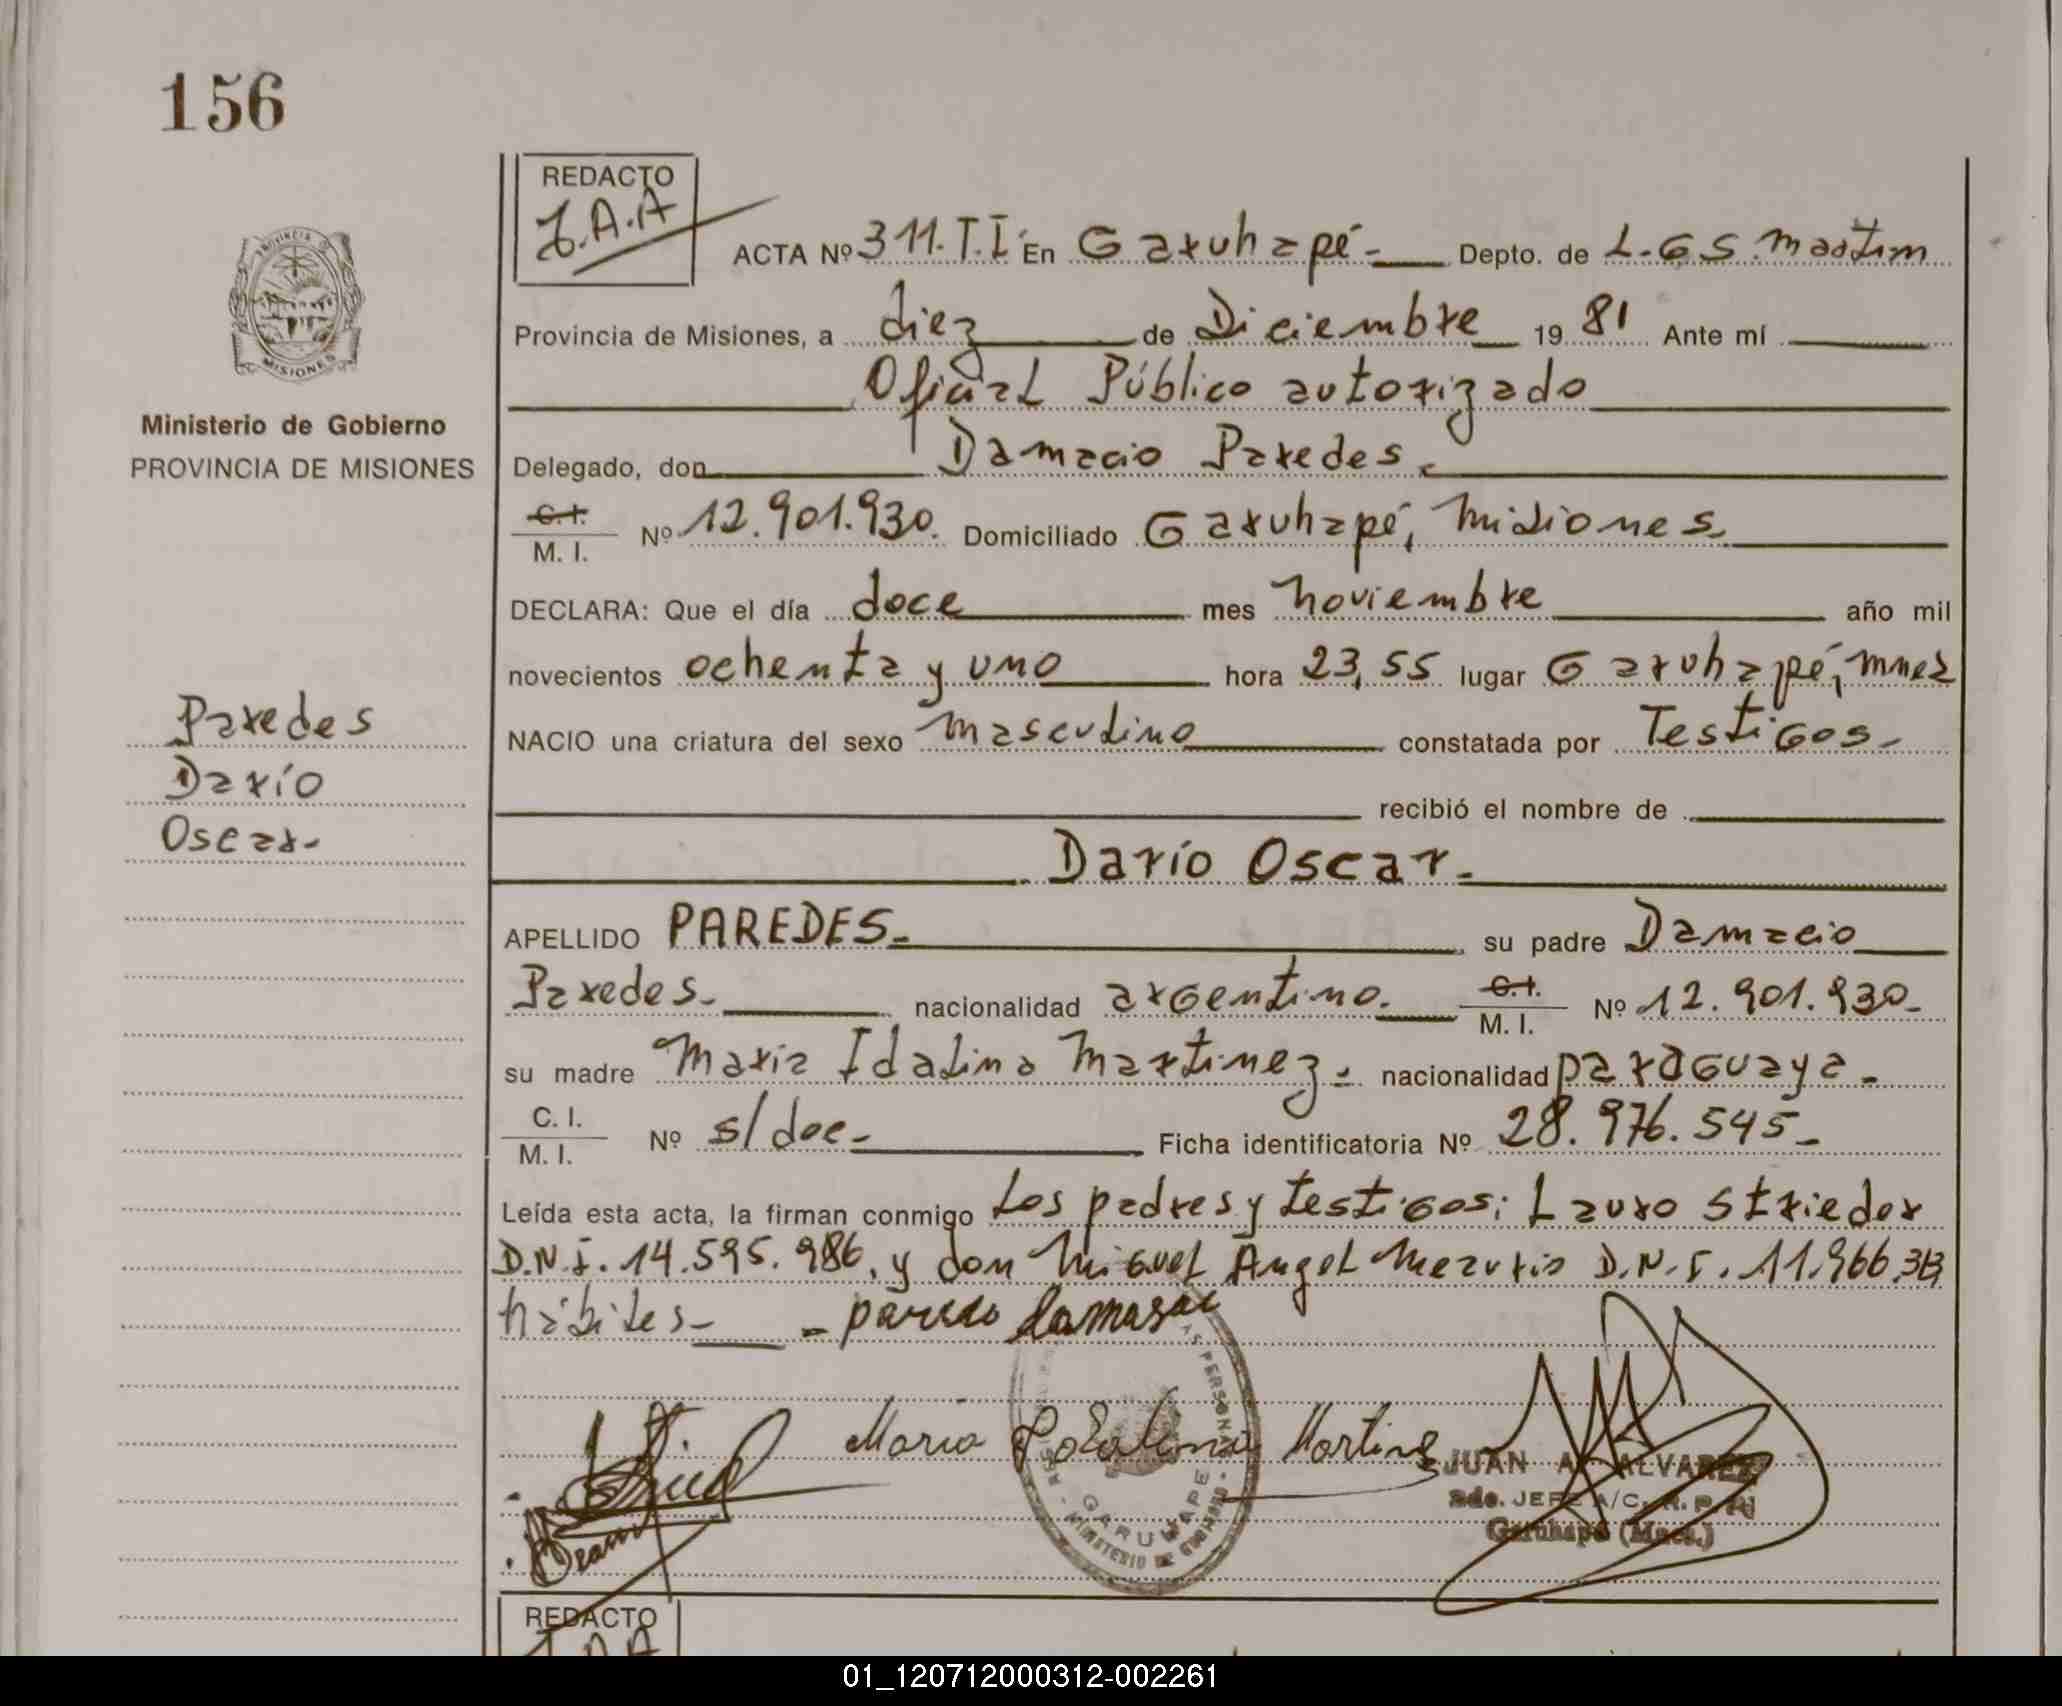 156
REDACTO
J.A.A
ACTA Nº 311.T.I En Garuhapé.- Depto. de L.G S. Martim
Provincia de Misiones, a diez de Diciembre 19 81 Ante mí
Oficial Público autorizado
Delegado, don Damacio Paredes.
C.I.
M. I. Nº 12.901.930. Domiciliado Garuhapé, Misiones.
DECLARA: Que el día doce mes noviembre año mil
novecientos ochenta y uno hora 23,55 lugar Garuhapé, Mnes
NACIO una criatura del sexo masculino constatada por Testigos.-
recibió el nombre de
Darío Oscar.-
APELLIDO PAREDES.- su padre Damacio
Paredes.- nacionalidad argentino. C.I.
M. I. Nº 12.901.930.-
su madre Maria Idalina Martinez.- nacionalidad paraguaya.-
C. I.
M. I. Nº s/doc.- Ficha identificatoria Nº 28.976.545.-
Leída esta acta, la firman conmigo Los padres y testigos: Lauro Strieder
D.N.I. 14.595.986, y don Miguel Angel D.N.I. 11.966.313
hábiles.-
Maria Idalina Martinez
Ministerio de Gobierno
PROVINCIA DE MISIONES
PROVINCIA DE
MISIONES
Paredes
Darío
Oscar.-
GARUHAPE
MINISTERIO DE GOBIERNO
JUAN A. ALVAREZ
2do. JEFE A/C. R. P.
Garuhapé (Mnes.)
REDACTO
01_120712000312-002261